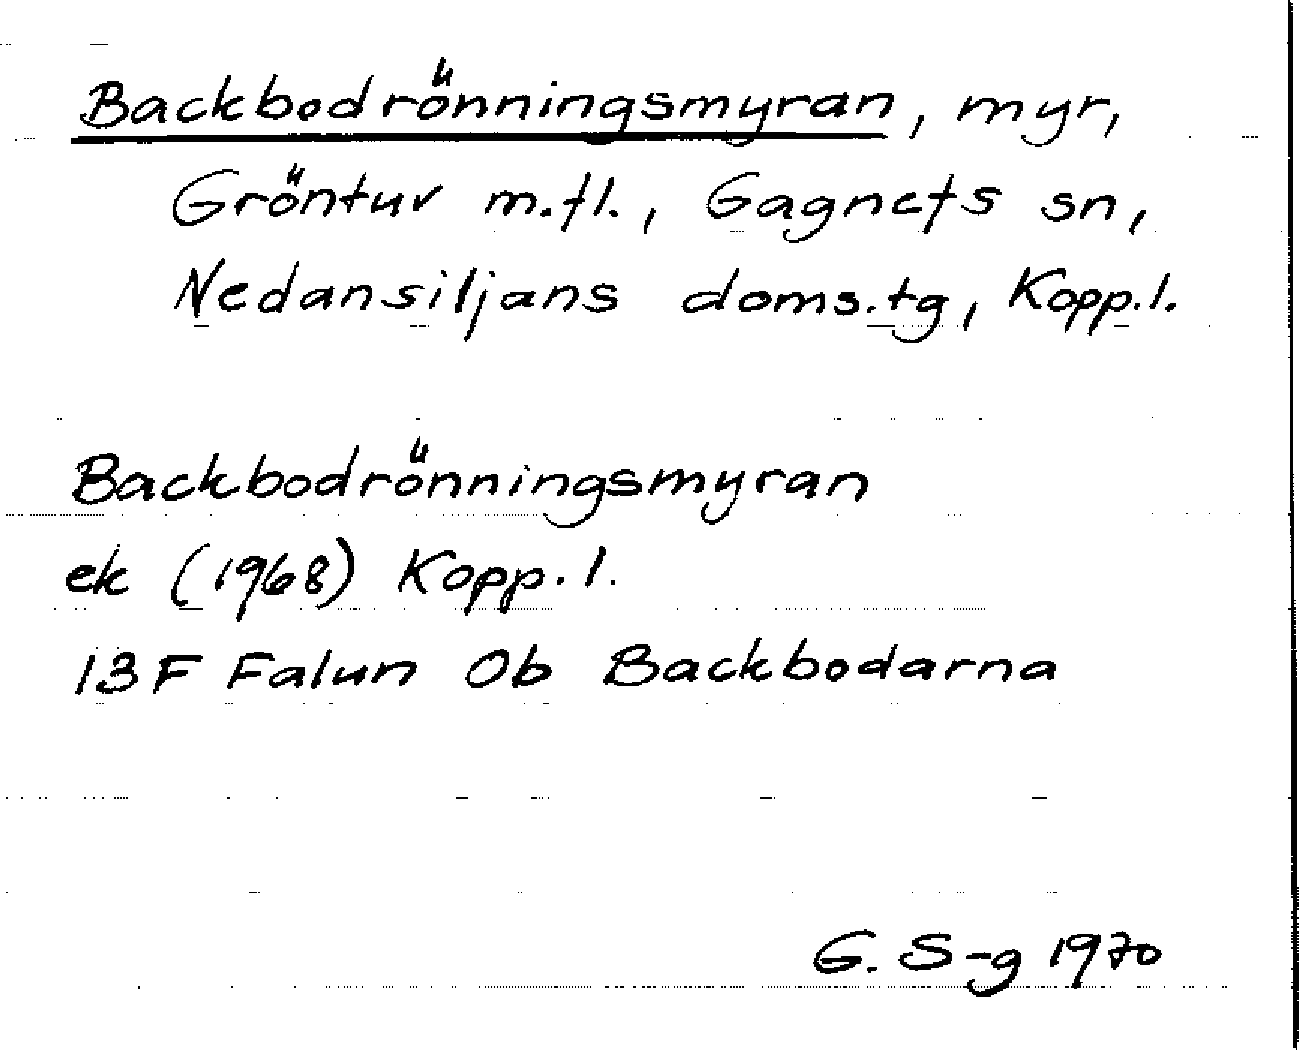 Backbodrönningsmyran, myr,
Gröntuv m.fl., Gagnefs sn,
Nedansiljans doms.tg, Kopp.l.
Backbodrönningsmyran
ek (1968) Kopp.l.
13F Falun 0b Backbodarna
G. S-g 1970